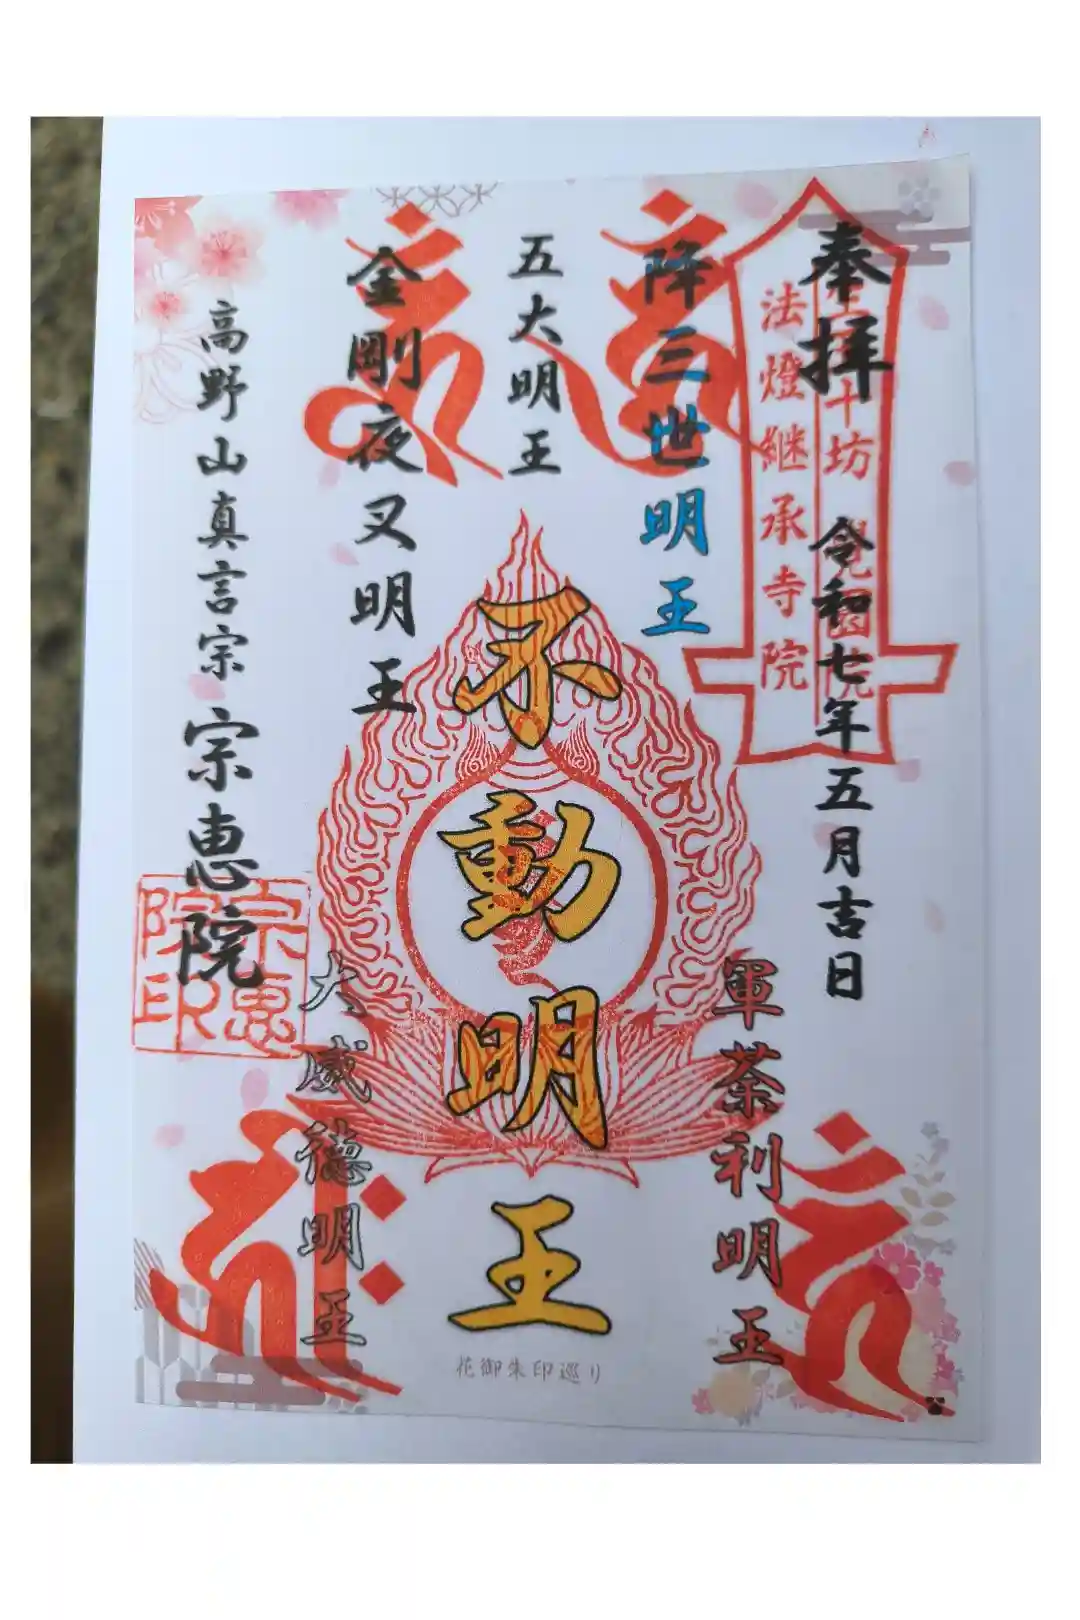 奉拝
令和七年五月吉日
十坊
法燈継承寺院
降三世明王
軍荼利明王
五大明王
不動明王
金剛夜叉明王
大威徳明王
高野山真言宗
宗恵院
宗恵
院印
花御朱印巡り